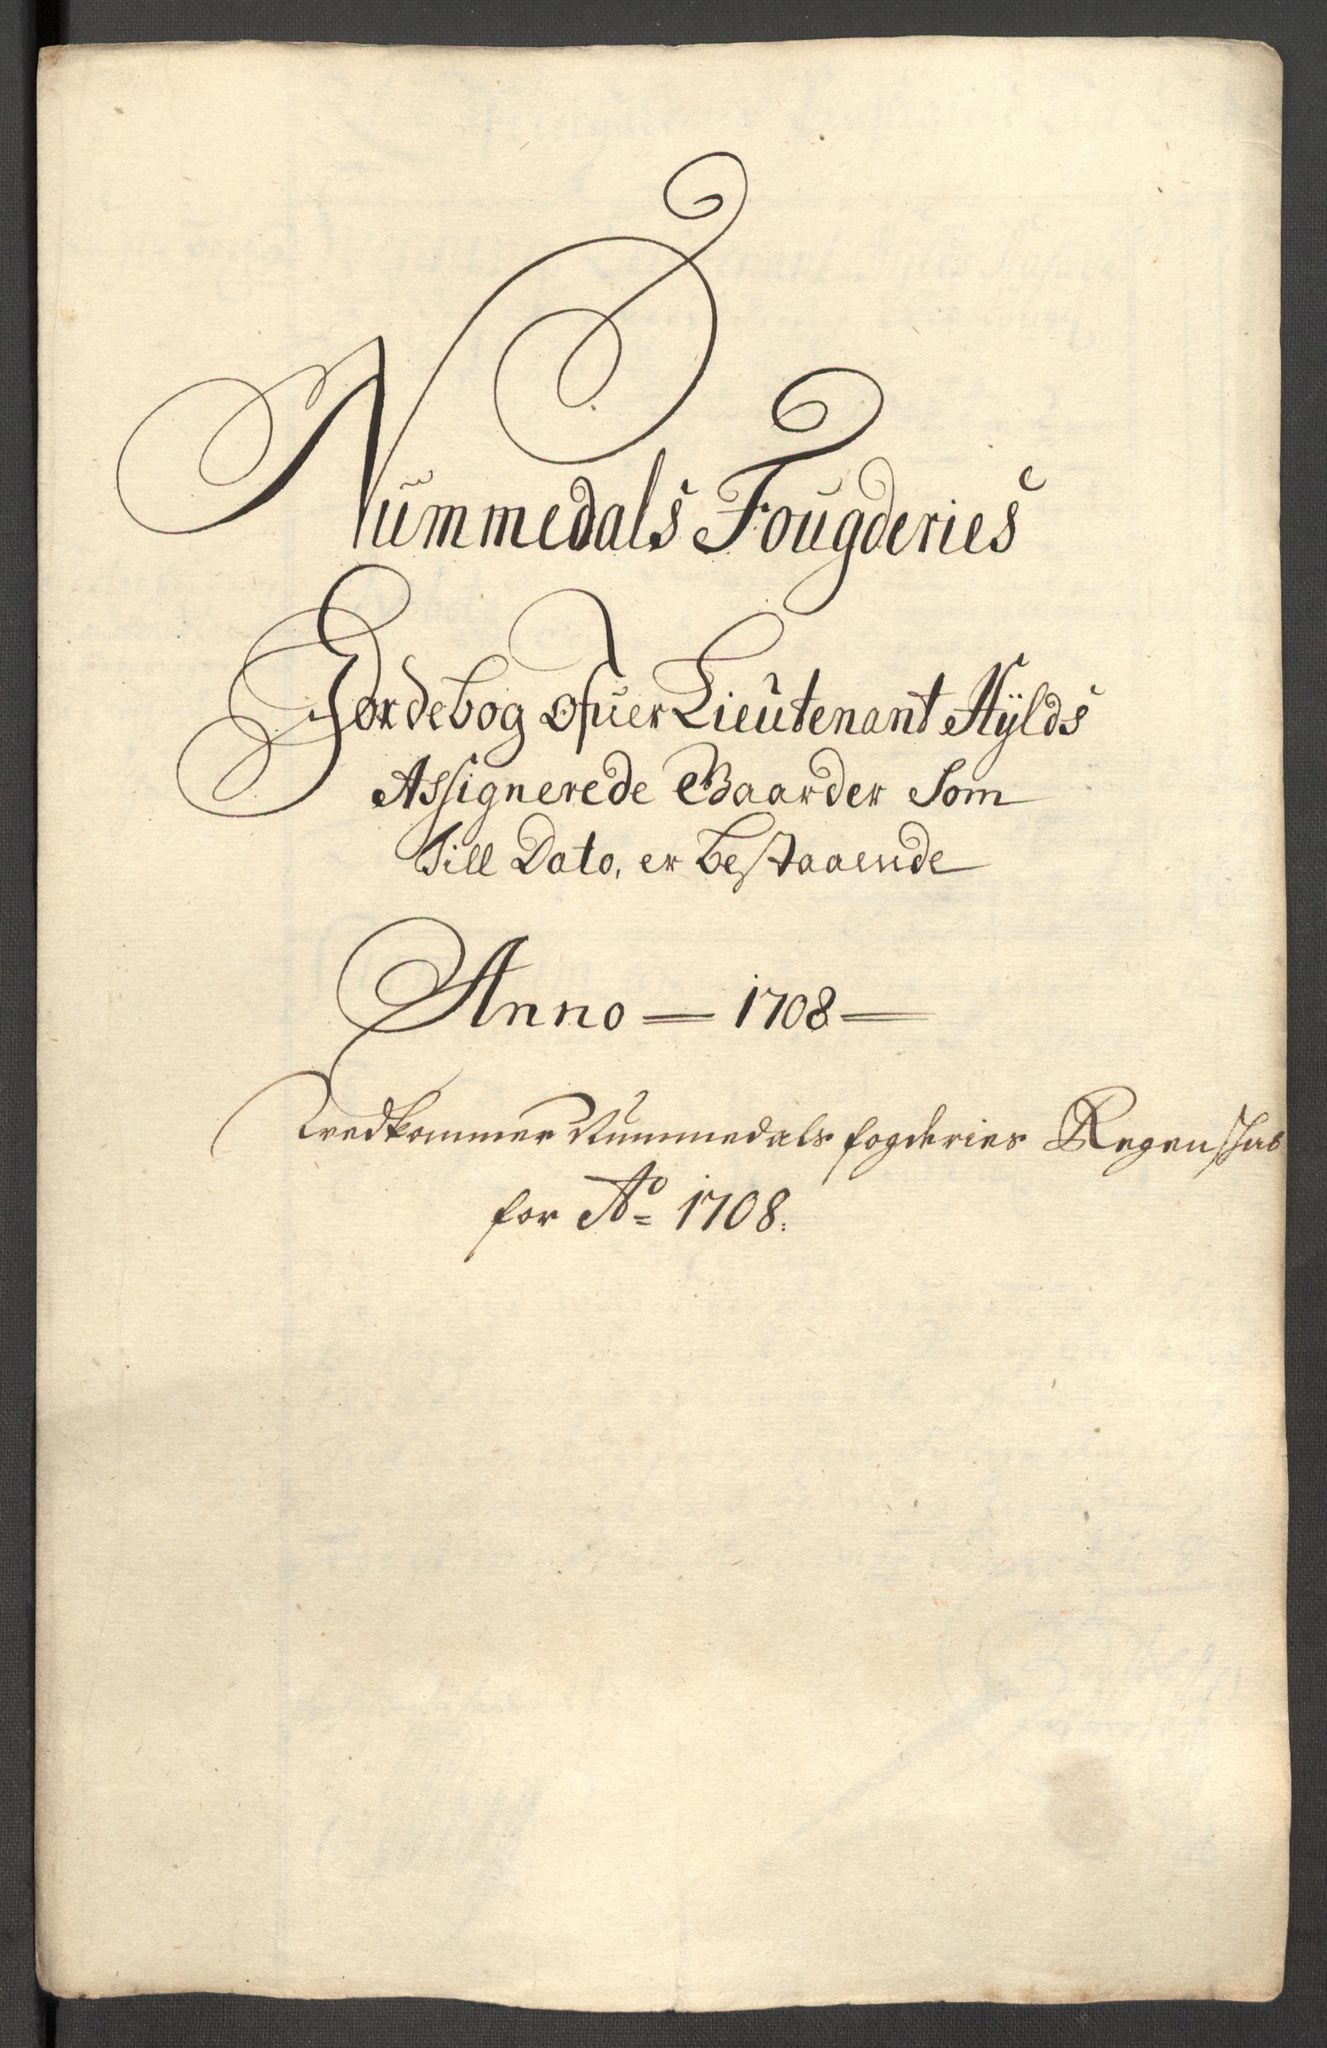 Nummedals Fougderies
Jordebog ofuer Lieutenant Hÿlds
Assignerede Gaarder Som
Till Dato, er bestaaende
Anno — 1708 —
Vedkommer Nummedals fogderies Regenskab
for Ao 1708.